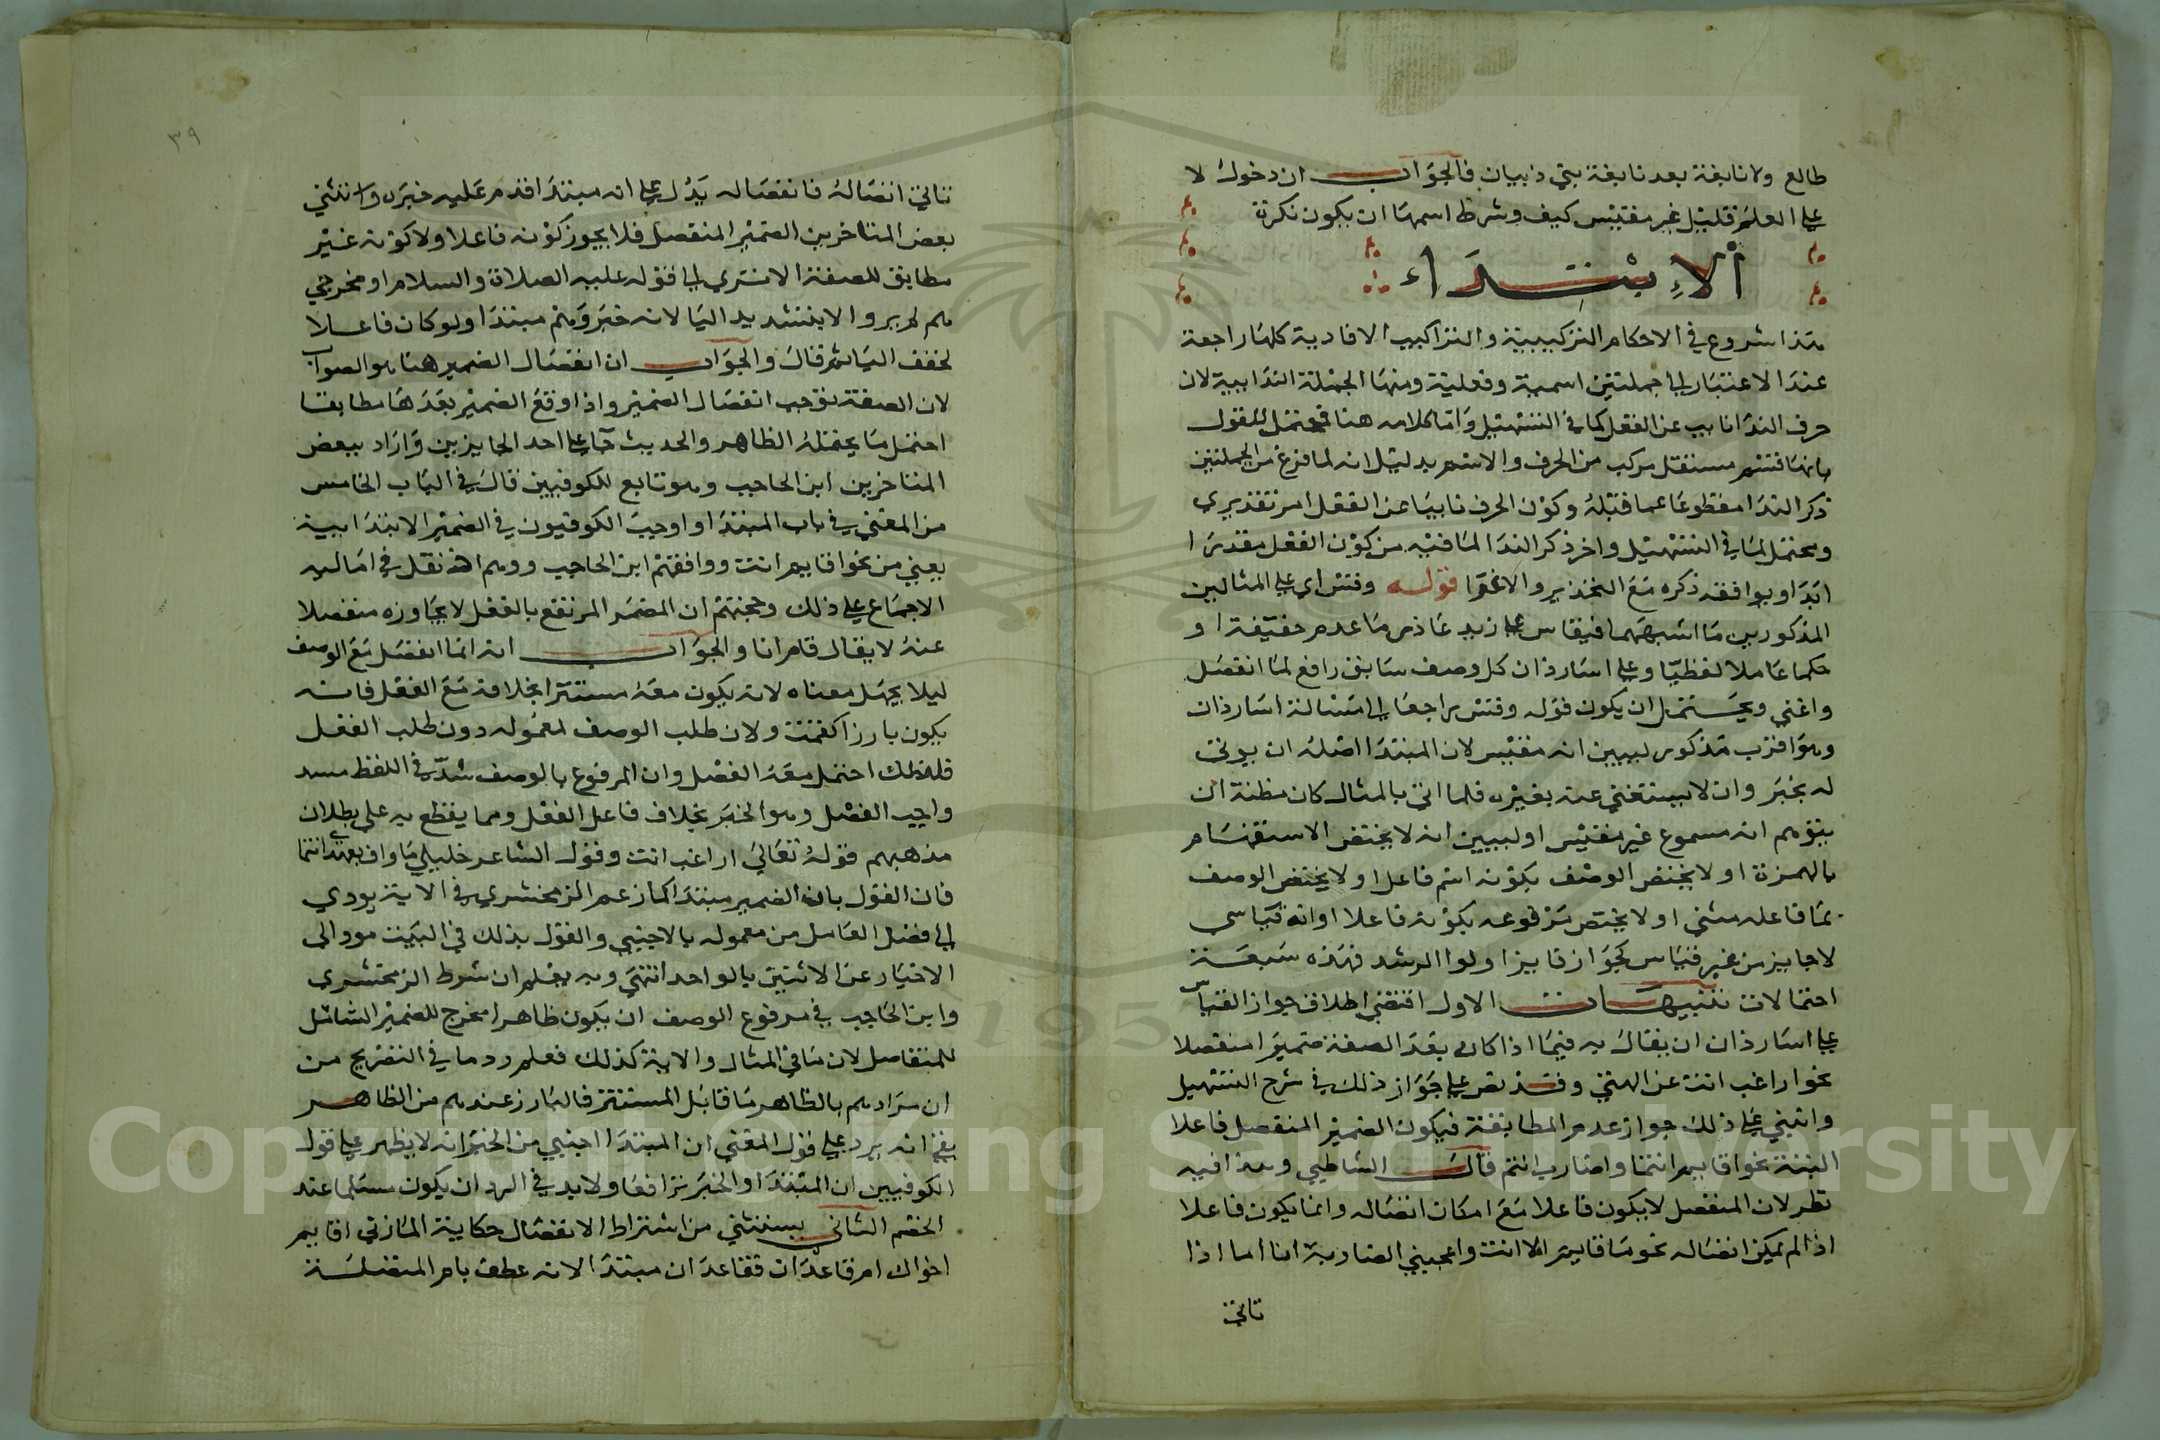 طالع ولا نابغة بعد نابغة بني ذبيان فالجواب ان دخول لا
على العلم قليل غير مقيس كيف وشرط اسمها ان يكون نكرة
الابتداء
هذا شروع في الاحكام التركيبية والتراكيب الافادية كلها راجعة
عند الاعتبار الى جملتين اسمية وفعلية ومنها الجملة الندايية لان
حرف الندا نايب عن الفعل كما في التسهيل واما كلامه هنا فيحتمل للقول
بانها قسم مستقل مركب من الحرف والاسم بدليل انه لما فرغ من الجملتين
ذكر الندا مقطوعا عما قبله وكون الحرف نايبا عن الفعل امر تقديري
ويحتمل لما في التسهيل واخر ذكر الندا لما فيه من كون الفعل مقدرا
ابدا ويوافقه ذكره مع التحذير والاغرا قوله وقس اي على المثالين
المذكورين ما اشبههما فيقاس على زيد عاذر ما عدم حقيقة او
حكما عاملا لفظيا وعلى اسار ذان كل وصف سابق رافع لما انفصل
واغنى ويحتمل ان يكون قوله وقس راجعا الى مسالة اسار ذان
وهو اقرب مذكور ليبين انه مقيس لان المبتدا اصله ان يوتى
له بخبر وان لا يستغني عنه بغيره فلما اتى بالمثال كان مظنة ان
يتوهم انه مسموع غير مقيس او ليبين انه لا يختص الاستفهام
بالهمزة او لا يختص الوصف بكونه اسم فاعل او لا يختص الوصف
بما فاعله مثنى او لا يختص مرفوعه بكونه فاعلا او انه قياسي
لا جايز من غير قياس كجواز فايز اولوا الرشد فهذه سبعة
احتمالات تنبيهات الاول اقتضى اطلاق جواز القياس
على اسار ذان ان يقال به فيما اذا كان بعد الصفة ضميرا منفصلا
نحو اراغب انت عن الهتي وقد نص على جواز ذلك في شرح التسهيل
وانبنى على ذلك جواز عدم المطابقة فيكون الضمير المنفصل فاعلا
البتة نحو اقايم انتما واضارب انتم قال الشاطبي وهذا فيه
نظر لان المنفصل لا يكون فاعلا مع امكان اتصاله وانما يكون فاعلا
اذا لم يمكن اتصاله نحو ما قايم الا انت واعجبني الضاربه انا اما اذا
تاتى
٣٩
تاتى اتصاله فانفصاله يدل على انه مبتدا قدم عليه خبره واستثنى
بعض المتاخرين الضمير المنفصل فلا يجوز كونه فاعلا ولا كونه غير
مطابق للصفة الا ترى الى قوله عليه الصلاة والسلام او مخرجي
هم لم يرو الا بتشديد اليا لانه خبر وهم مبتدا ولو كان فاعلا
لخفف اليا ثم قال والجواب ان انفصال الضمير هنا هو الصواب
لان الصفة توجب انفصال الضمير واذا وقع الضمير بعدها مطابقا
احتمل ما يحتمله الظاهر والحديث جا على احد الجايزين واراد ببعض
المتاخرين ابن الحاجب وهو تابع للكوفيين قال في الباب الخامس
من المغني في باب المبتدا واوجب الكوفيون في الضمير الابتدايية
يعني من نحو اقايم انت ووافقهم ابن الحاجب ووهم اذ نقل في اماليه
الاجماع على ذلك وحجتهم ان المضمر المرتفع بالفعل لا يجاوره منفصلا
عنه لا يقال قام انا والجواب انه انما انفصل مع الوصف
ليلا يجهل معناه لانه يكون معه مستترا بخلافه مع الفعل فانه
يكون بارزا كقمت ولان طلب الوصف لمعموله دون طلب الفعل
فلذلك احتمل معه الفصل وان المرفوع بالوصف سد في اللفظ مسد
واجب الفصل وهو الخبر بخلاف فاعل الفعل ومما يقطع به على بطلان
مذهبهم قوله تعالى اراغب انت وقول الشاعر خليلي ما واف بعهدي انتما
فان القول بان الضمير مبتدا كما زعم الزمخشري في الاية يودي
الى فصل العامل من معموله بالاجنبي والقول بذلك في البيت مود الى
الاخبار عن الاثنين بالواحد انتهى وبه يعلم ان شرط الزمخشري
وابن الحاجب في مرفوع الوصف ان يكون ظاهرا مخرج للضمير الشامل
للمتفاصل لان ما في المثال والاية كذلك فعلم رد ما في التصريح من
ان مرادهم بالظاهر ما قابل المستتر فالبارز عندهم من الظاهر
نعم انه يرد على قول المغني ان المبتدا اجنبي من الخبر انه لا يظهر على قول
الكوفيين ان المبتدا والخبر ترافعا ولا بد في الرد ان يكون مسلما عند
الخصم الثاني يستثنى من اشتراط الانفصال حكاية المازني اقايم
اخواك ام قاعدان فقاعدان مبتدا لانه عطف بام المتصلة
Copyright © King Saud University
195